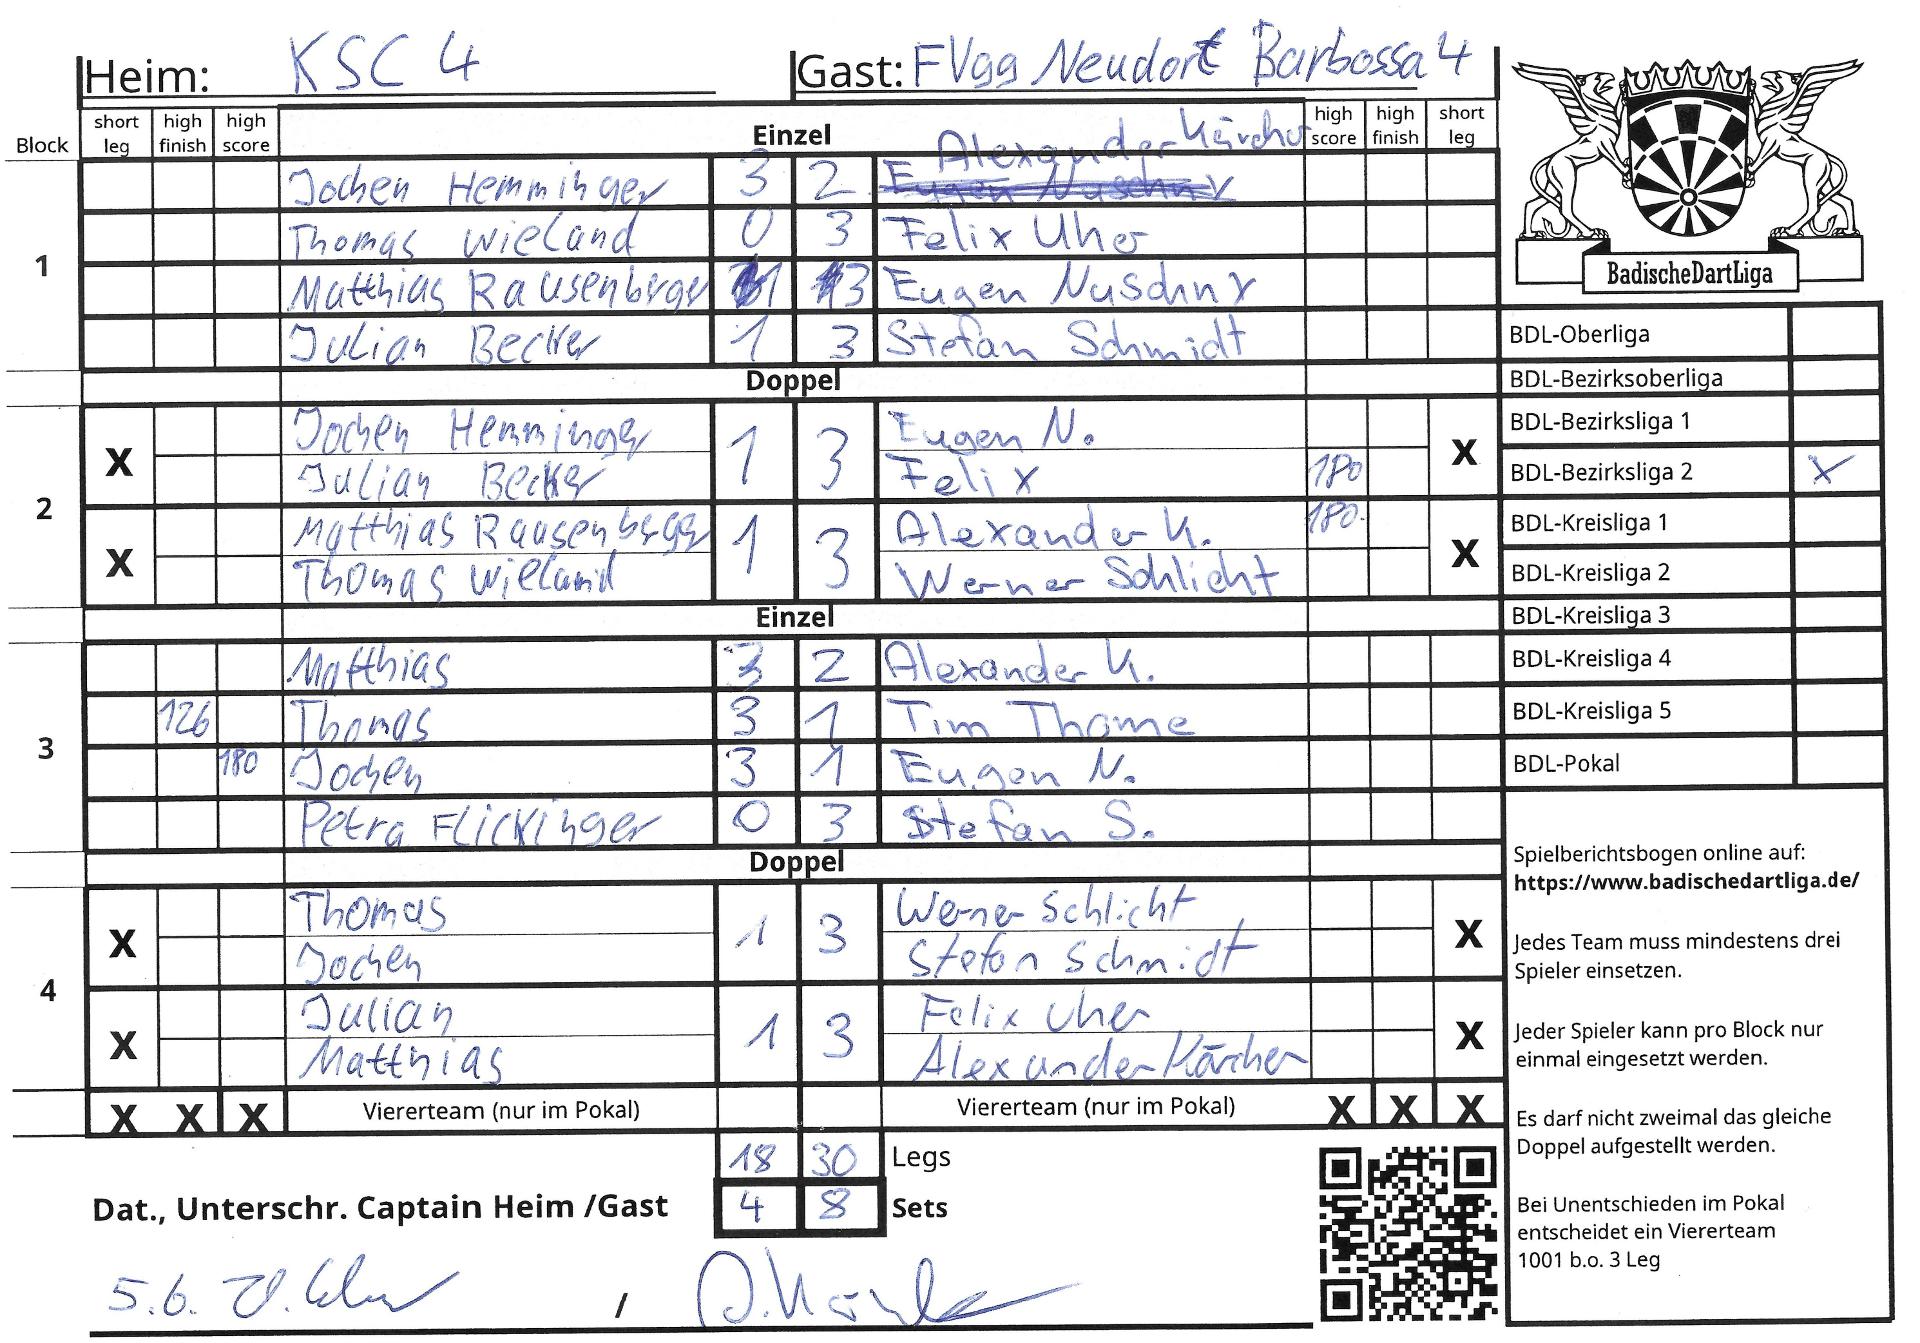 Heim: KSC 4 Gast: FVgg Neudorf Barbossa 4
Block short leg high finish high score Einzel high score high finish short leg
1
Jochen Hemminger 3 2 Alexander Kärcher
Thomas Wieland 0 3 Felix Uher
Matthias Rausenberger 1 3 Eugen Nuschny
Julian Becker 1 3 Stefan Schmidt
Doppel
2
X Jochen Hemminger 1 3 Eugen N. X
Julian Becker Felix 180
X Matthias Rausenberger 1 3 Alexander K. 180 X
Thomas Wieland Werner Schlicht
Einzel
3
Matthias 3 2 Alexander K.
126 Thomas 3 1 Tim Thome
180 Jochen 3 1 Eugen N.
Petra Flickinger 0 3 Stefan S.
Doppel
4
X Thomas 1 3 Werner Schlicht X
Jochen Stefan Schmidt
X Julian 1 3 Felix Uher X
Matthias Alexander Kärcher
X X X Viererteam (nur im Pokal) Viererteam (nur im Pokal) X X X
18 30 Legs
4 8 Sets
Dat., Unterschr. Captain Heim /Gast
5.6. /
BadischeDartLiga
BDL-Oberliga
BDL-Bezirksoberliga
BDL-Bezirksliga 1
BDL-Bezirksliga 2 X
BDL-Kreisliga 1
BDL-Kreisliga 2
BDL-Kreisliga 3
BDL-Kreisliga 4
BDL-Kreisliga 5
BDL-Pokal
Spielberichtsbogen online auf:
https://www.badischedartliga.de/
Jedes Team muss mindestens drei
Spieler einsetzen.
Jeder Spieler kann pro Block nur
einmal eingesetzt werden.
Es darf nicht zweimal das gleiche
Doppel aufgestellt werden.
Bei Unentschieden im Pokal
entscheidet ein Viererteam
1001 b.o. 3 Leg